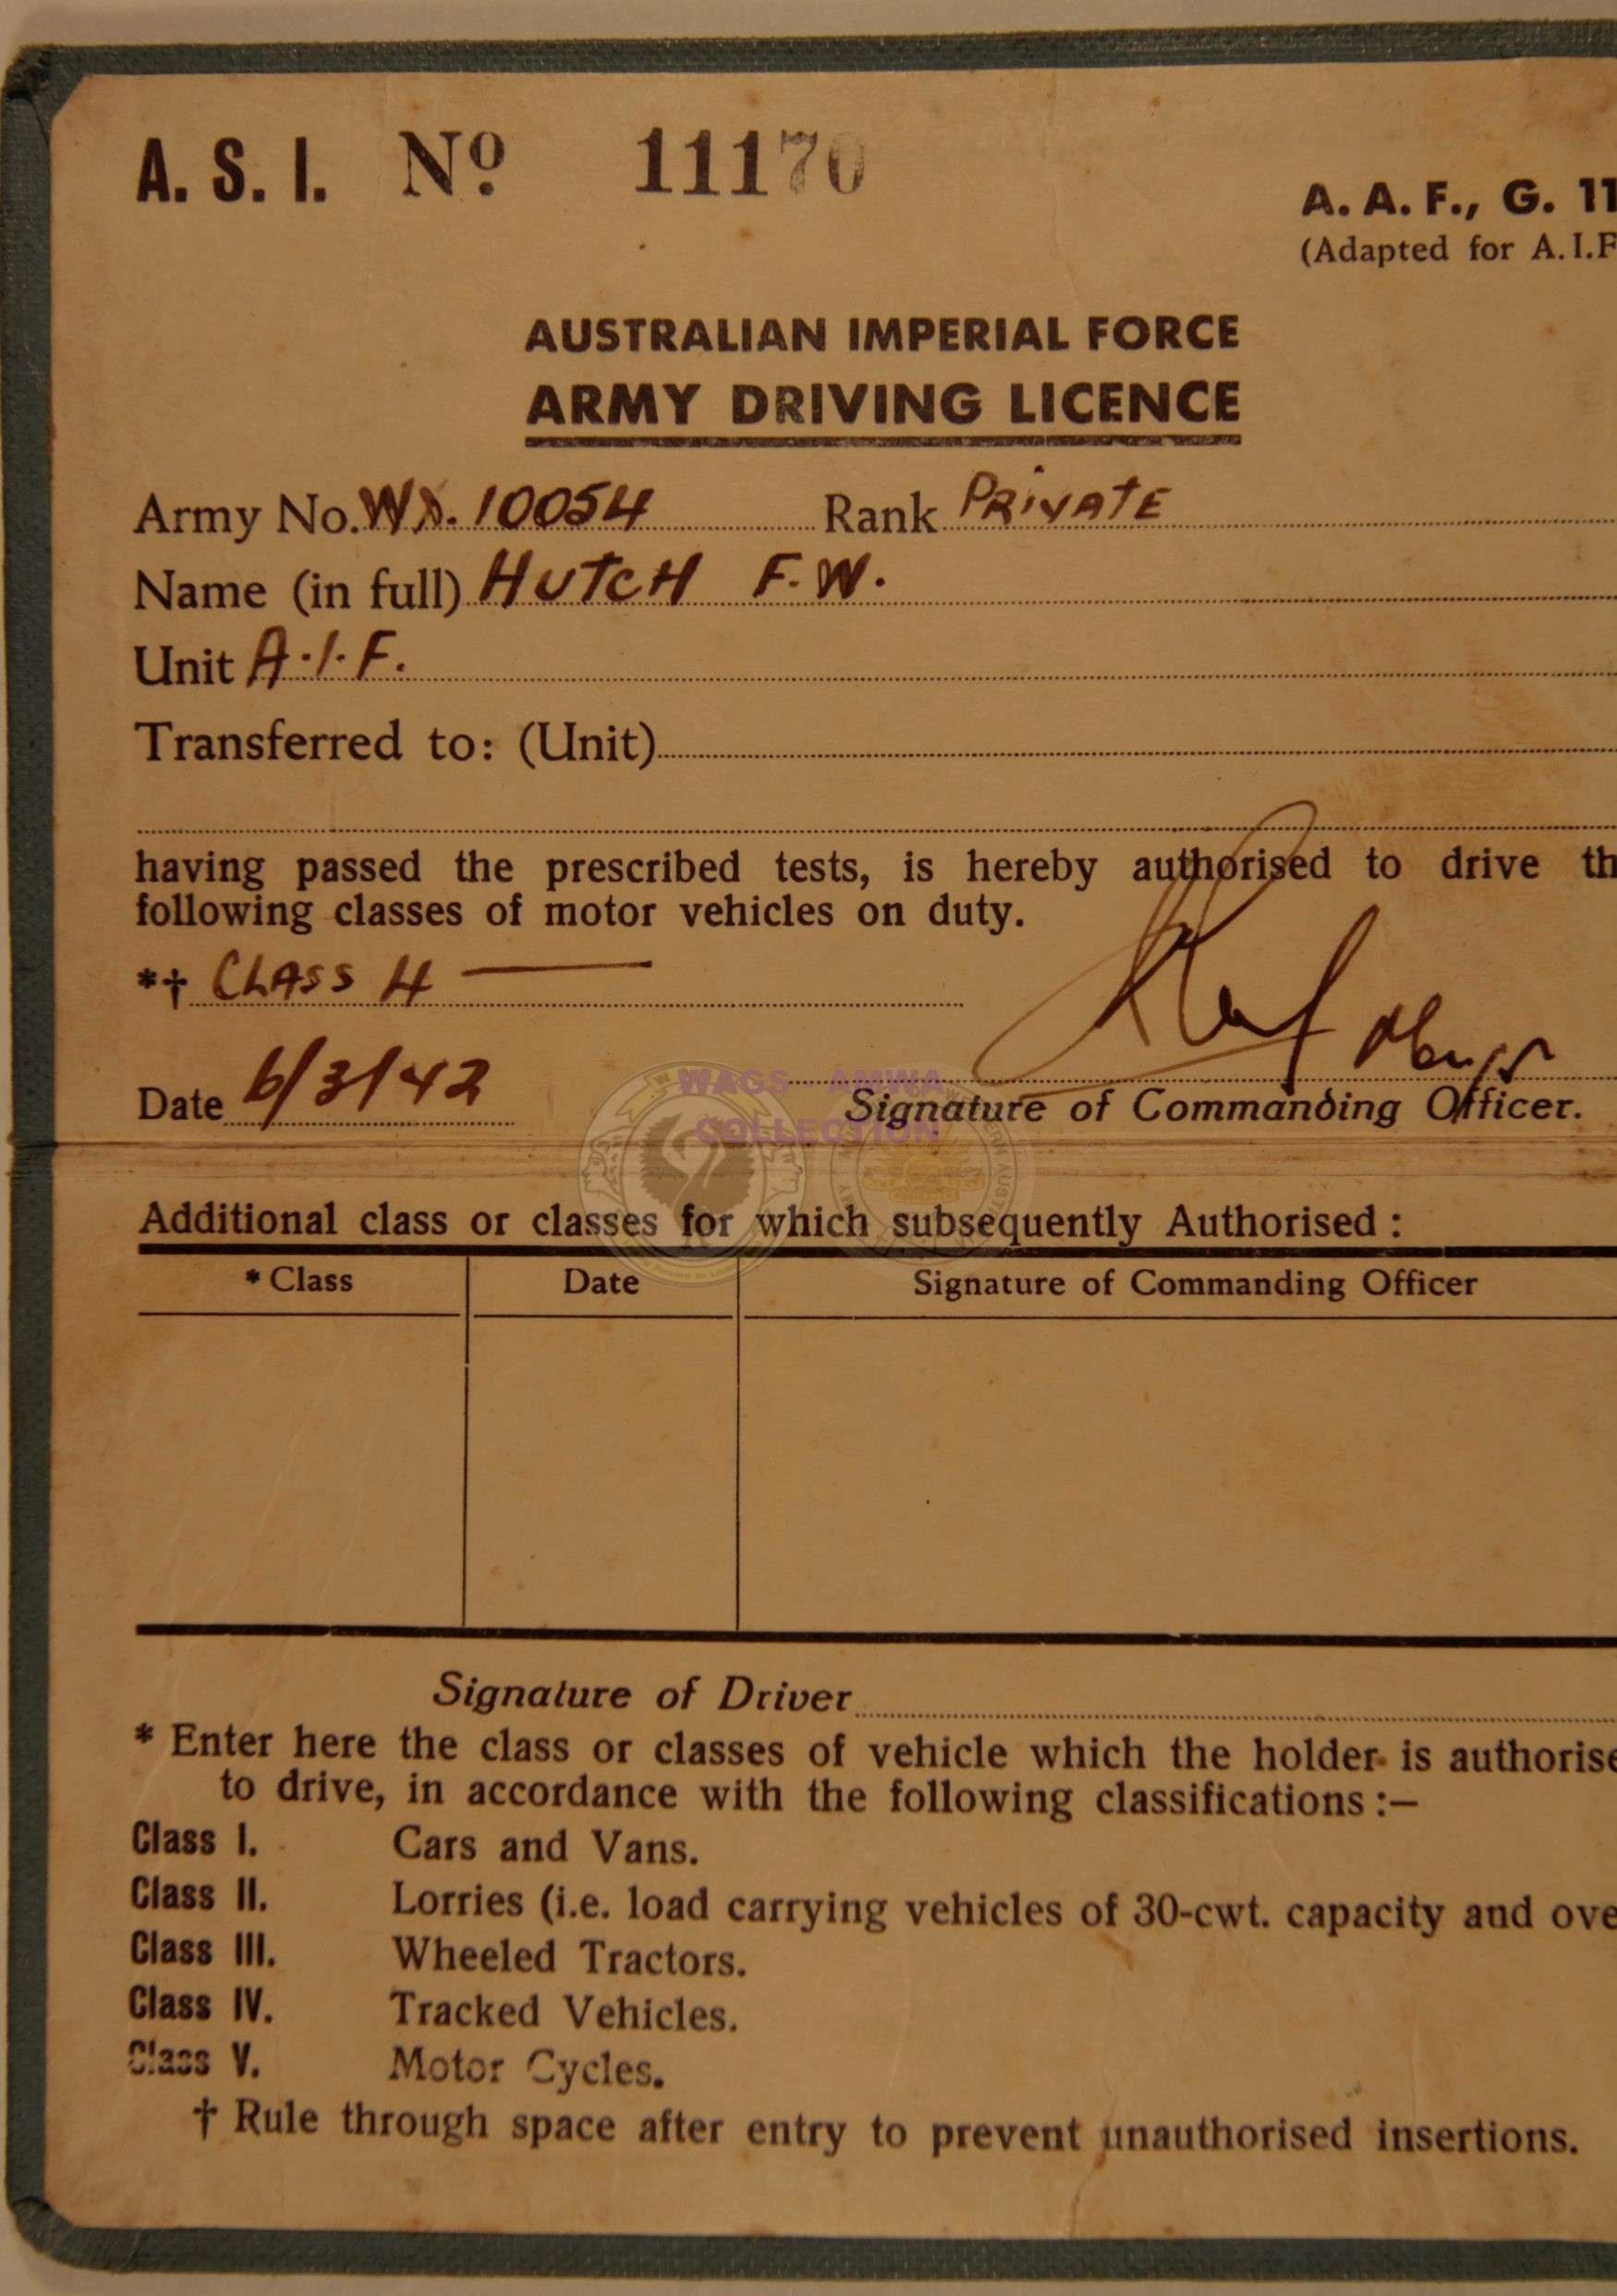 A. S. I. Nº 11170
A. A. F., G. 11
(Adapted for A.I.F
AUSTRALIAN IMPERIAL FORCE
ARMY DRIVING LICENCE
Army No. WX. 10054 Rank PRIVATE
Name (in full) HUTCH F.W.
Unit A.I.F.
Transferred to: (Unit)
having passed the prescribed tests, is hereby authorised to drive th
following classes of motor vehicles on duty.
*† CLASS 4
Date 6/3/42
WAGS AMWA
COLLECTION
Signature of Commanding Officer.
Additional class or classes for which subsequently Authorised :
* Class Date Signature of Commanding Officer
Signature of Driver
* Enter here the class or classes of vehicle which the holder is authorise
to drive, in accordance with the following classifications :—
Class I. Cars and Vans.
Class II. Lorries (i.e. load carrying vehicles of 30-cwt. capacity and ove
Class III. Wheeled Tractors.
Class IV. Tracked Vehicles.
Class V. Motor Cycles.
† Rule through space after entry to prevent unauthorised insertions.